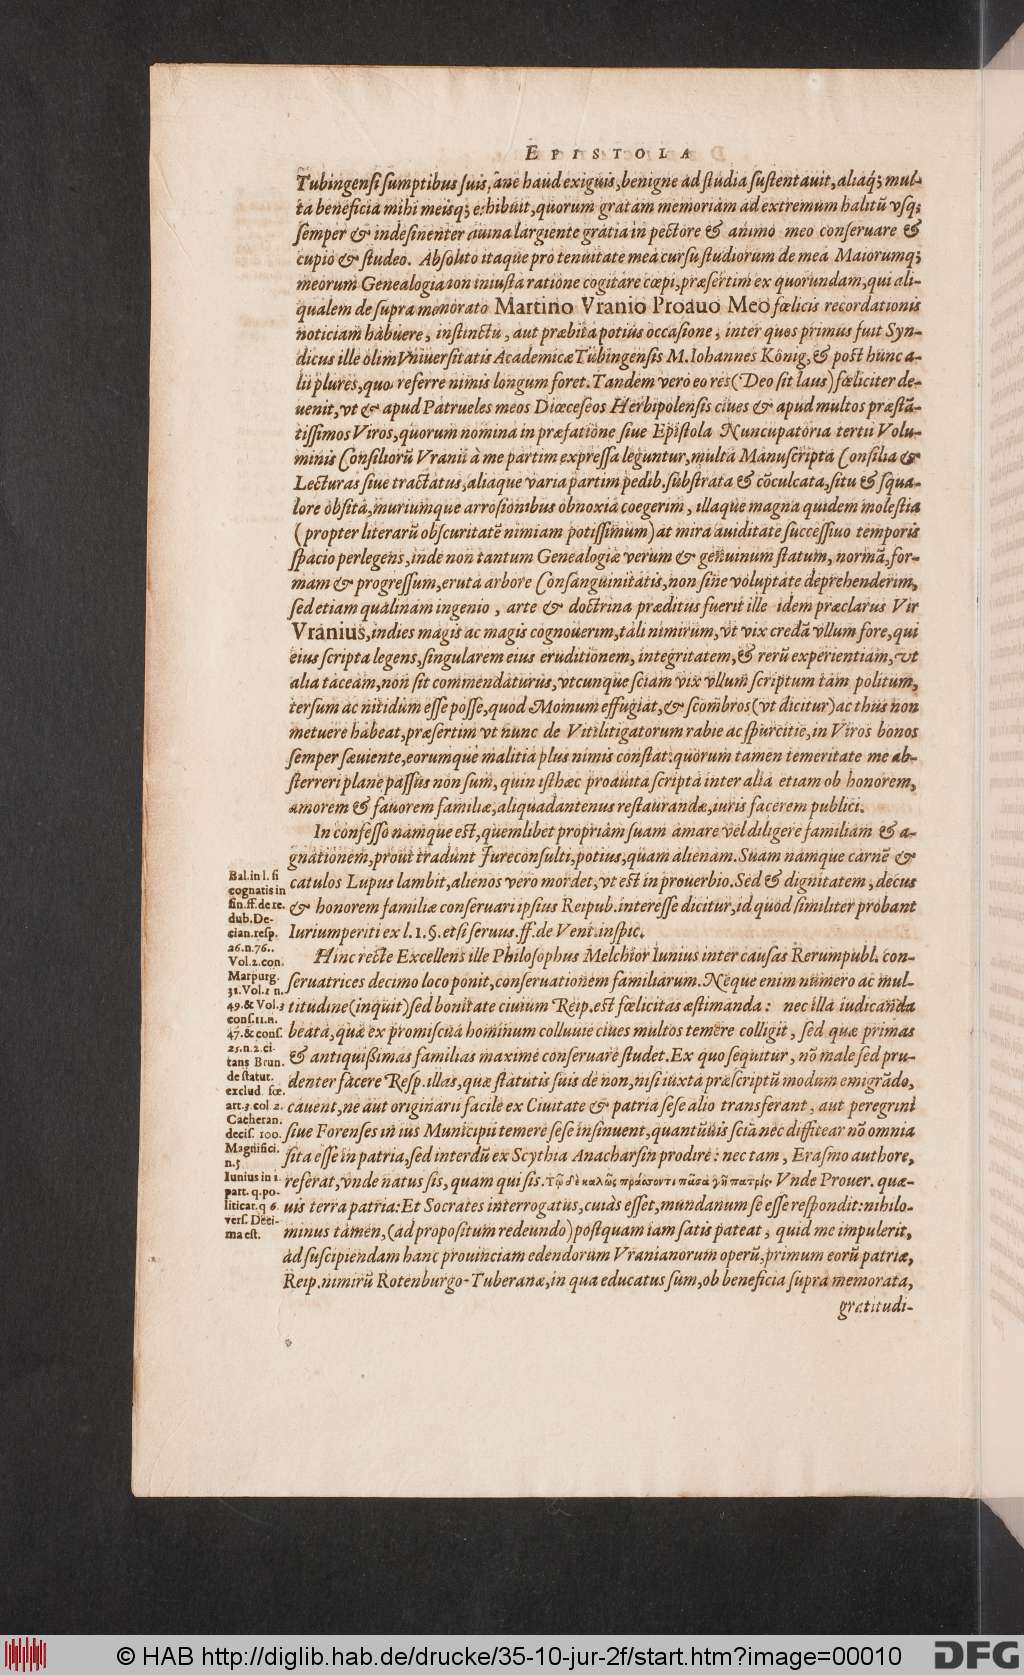 EPISTOLA
Tubingensi sumptibus suis, sane haud exiguis, benigne ad studia sustentauit, aliaq́; mul-
ta beneficia mihi meisq́; exhibuit, quorum gratam memoriam ad extremum halitũ vsq́;
semper & indesinenter diuina largiente gratia in pectore & animo meo conseruare &
cupio & studeo. Absoluto itaque pro tenuitate mea cursu studiorum de mea Maiorumq́;
meorum Genealogia non iniusta ratione cogitare cœpi, præsertim ex quorundam, qui ali-
qualem de supra memorato Martino Vranio Proauo Meo fœlicis recordationis
noticiam habuere, instinctu, aut præbita potius occasione, inter quos primus fuit Syn-
dicus ille olim Vniuersitatis Academicæ Tubingensis M. Iohannes König, & post hunc a-
lii plures, quos referre nimis longum foret. Tandem vero eo res (Deo sit laus) fœliciter de-
uenit, vt & apud Patrueles meos Diœceseos Herbipolensis ciues & apud multos præstã-
tissimos Viros, quorum nomina in præfatione siue Epistola Nuncupatoria tertii Volu-
minis Consiliorũ Vranii à me partim expressa leguntur, multa Manuscripta Consilia &
Lecturas siue tractatus, aliaque varia partim pedib. substrata & cõculcata, situ & squa-
lore obsita, muriumque arrosionibus obnoxia coegerim, illaque magna quidem molestia
(propter literarũ obscuritatẽ nimiam potissimum) at mira auiditate successiuo temporis
spacio perlegens, inde non tantum Genealogiæ verum & genuinum statum, normã, for-
mam & progressum, eruta arbore Consanguinitatis, non sine voluptate deprehenderim,
sed etiam qualinam ingenio, arte & doctrina præditus fuerit ille idem præclarus Vir
Vranius, indies magis ac magis cognouerim, tali nimirum, vt vix credã vllum fore, qui
eius scripta legens, singularem eius eruditionem, integritatem, & rerũ experientiam, vt
alia taceam, non sit commendaturus, vtcunque sciam vix vllum scriptum tam politum,
tersum ac nitidum esse posse, quod Momum effugiat, & scombros (vt dicitur) ac thus non
metuere habeat, præsertim vt nunc de Vitilitigatorum rabie ac spurcitie, in Viros bonos
semper sæuiente, eorumque malitia plus nimis constat: quorum tamen temeritate me ab-
sterreri plane passus non sum, quin isthæc proauita scripta inter alia etiam ob honorem,
amorem & fauorem familiæ, aliquadantenus restaurandæ, iuris facerem publici.
In confesso namque est, quemlibet propriam suam amare vel diligere familiam & a-
gnationem, prout tradunt Jureconsulti, potius, quam alienam. Suam namque carnẽ &
catulos Lupus lambit, alienos vero mordet, vt est in prouerbio. Sed & dignitatem, decus
& honorem familiæ conseruari ipsius Reipub. interesse dicitur, id quod similiter probant
Iuriumperiti ex l. 1. §. etsi seruus. ff. de Vent. inspic.
Hinc recte Excellens ille Philosophus Melchior Iunius inter causas Rerumpubl. con-
seruatrices decimo loco ponit, conseruationem familiarum. Neque enim numero ac mul-
titudine (inquit) sed bonitate ciuium Reip. est fœlicitas æstimanda: nec illa iudicanda
beata, quæ ex promiscua hominum colluuie ciues multos temere colligit, sed quæ primas
& antiquißimas familias maxime conseruare studet. Ex quo sequitur, nõ male sed pru-
denter facere Resp. illas, quæ statutis suis de non, nisi iuxta præscriptũ modum emigrãdo,
cauent, ne aut originarii facile ex Ciuitate & patria sese alio transferant, aut peregrini
siue Forenses in ius Municipii temere sese insinuent, quantũuis sciã nec diffitear nõ omnia
sita esse in patria, sed interdũ ex Scythia Anacharsin prodire: nec tam, Erasmo authore,
referat, vnde natus sis, quam qui sis. τῷ δὲ καλῶς πράσσοντι πᾶσα γῆ πατρίς. Vnde Prouer. quæ-
uis terra patria: Et Socrates interrogatus, cuiàs esset, mundanum se esse respondit: nihilo-
minus tamen, (ad propositum redeundo) postquam iam satis pateat, quid me impulerit,
ad suscipiendam hanc prouinciam edendorum Vranianorum operũ, primum eorũ patriæ,
Reip. nimirũ Rotenburgo-Tuberanæ, in qua educatus sum, ob beneficia supra memorata,
gratitudi-
Bal. in l. si
cognatis in
fin. ff. de re.
dub. De-
cian. resp.
26. n. 76.
Vol. 2. con.
Marpurg.
31. Vol. 1 n.
49. & Vol. 3
cons. 11. n.
47. & cons.
25. n. 2. ci-
tans Brun.
de statut.
exclud. fœ.
art. 3. col. 2.
Cacheran.
decis. 100.
Magnifici.
n. 5
Iunius in 1.
part. q. po-
liticar. q 6.
vers. Deci-
ma est.
© HAB http://diglib.hab.de/drucke/35-10-jur-2f/start.htm?image=00010
DFG